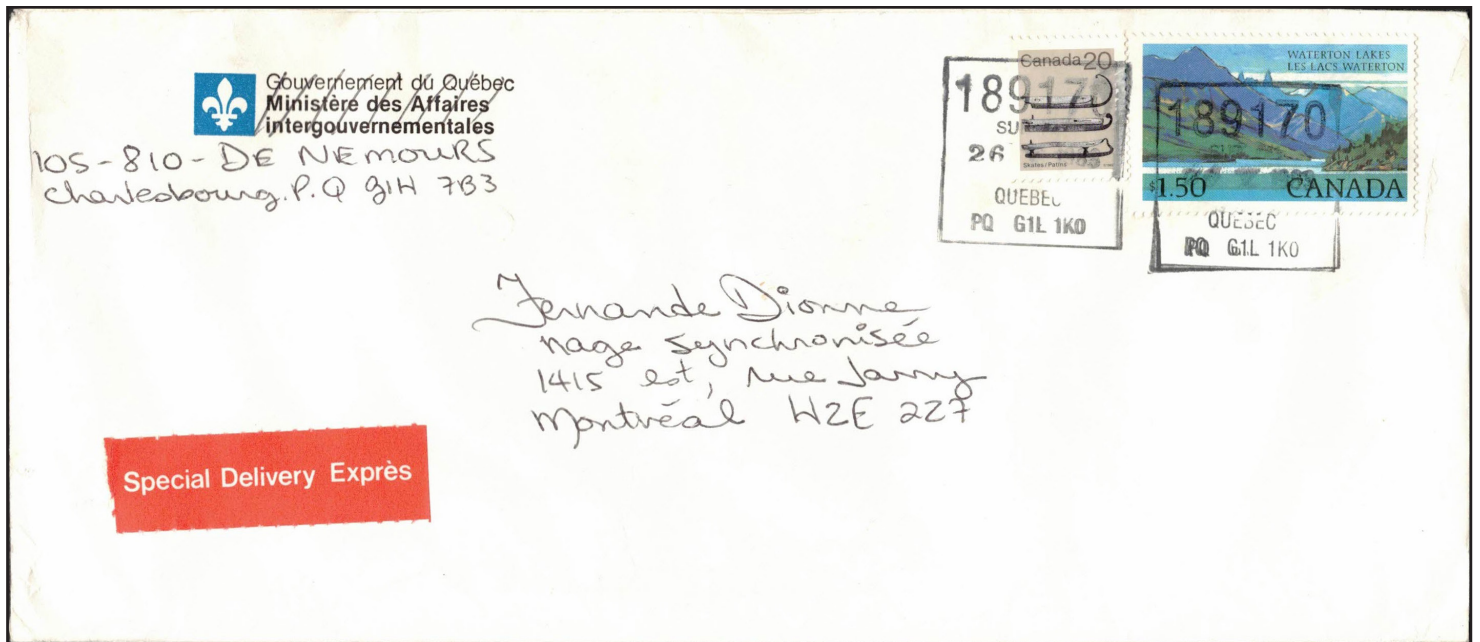 Gouvernement du Québec
Ministère des Affaires
intergouvernementales
105-810-DE NEMOURS
Charlesbourg. P.Q G1H 7B3
Canada 20
Skates/Patins
WATERTON LAKES
LES LACS WATERTON
$1.50 CANADA
189170
SU
26
QUEBEC
PQ G1L 1K0
189170
QUEBEC
PQ G1L 1K0
Fernande Dionne
nage synchronisée
1415 est, rue Jarry
Montréal H2E 2Z7
Special Delivery Exprès